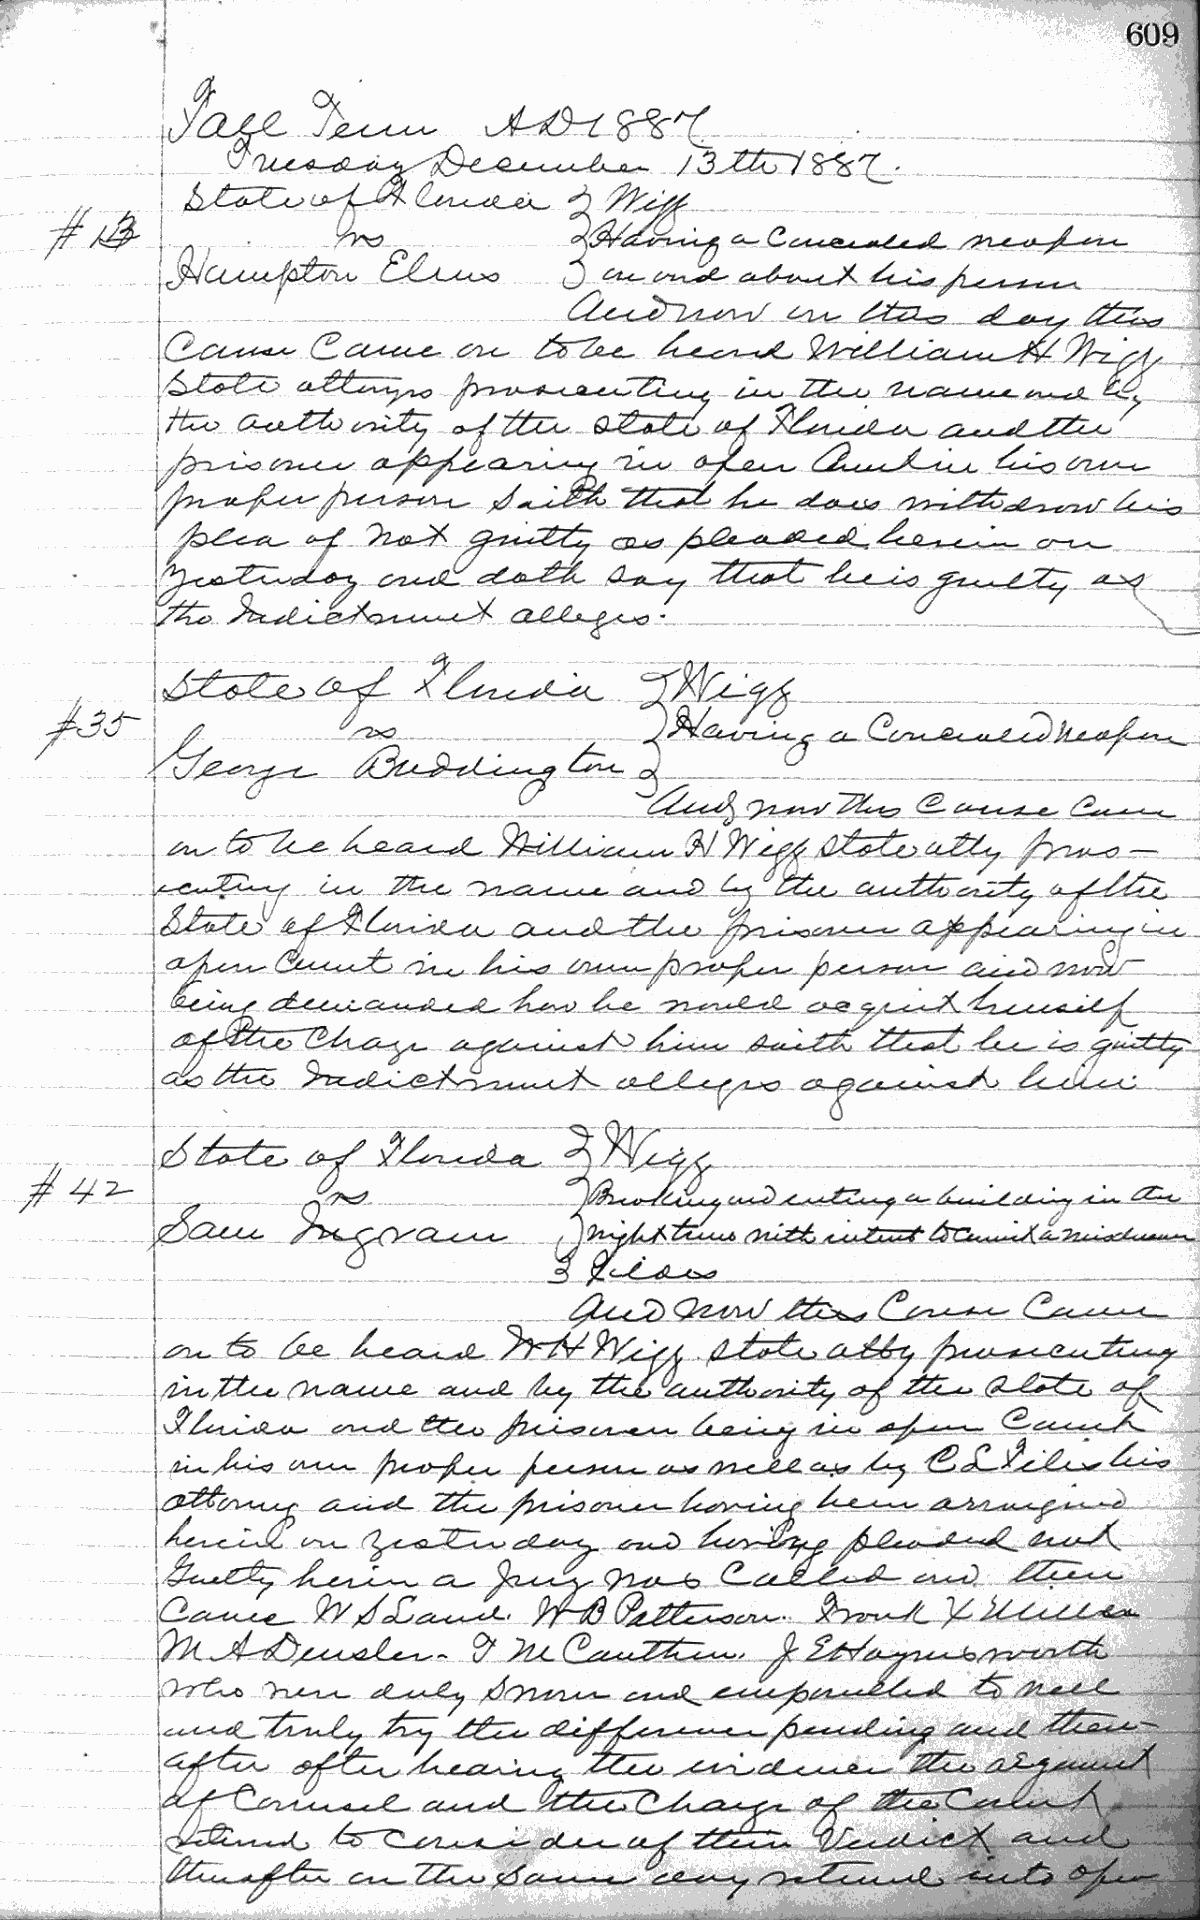 609
Fall Term AD 1887
Tuesday December 13th 1887.
State of Florida } Wigg
#13 vs } Having a Concealed weapon
Hampton Elms } on and about his person
And now on this day this
Cause Came on to be heard William H Wigg
State attorys prosecuting in the name and by
the authority of the State of Florida and the
prisoner appearing in open Court in his own
proper person Saith that he does withdrow his
plea of Not guilty as pleaded herein on
yesterday and doth say that he is guilty as
the Indictment alleges.
State of Florida } Wigg
#35 vs } Having a Concealed Weapon
George Buddington }
And now this Cause Came
on to be heard William H Wigg State atty pros-
ecuting in the name and by the authority of the
State of Florida and the prisoner appearing in
open Court in his own proper person and now
being demanded how he would acquit himself
of the Charge against him saith that he is guilty
as the Indictment alleges against him
State of Florida } Wigg
#42 vs } Breaking and entering a building in the
Sam Ingram } night time with intent to Commit a misdemeanor
} Fildes
And now this Cause Came
on to be heard W H Wigg State atty prosecuting
in the name and by the authority of the State of
Florida and the prisoner being in open Court
in his own proper person as well as by C L his
attorney and the prisoner having been arraigned
herein on yesterday and having pleaded not
Guilty herein a Jury was Called and then
Came W S Land. W B Patterson. Frank X Miller
M A Densler. T M Cauthen. J E Haynesworth
who were duly Sworn and empanelled to well
and truly try the difference pending and there-
after after hearing the evidence the argument
of Counsel and the Charge of the Court
retired to consider of their Verdict and
thereafter on the same day returned into open